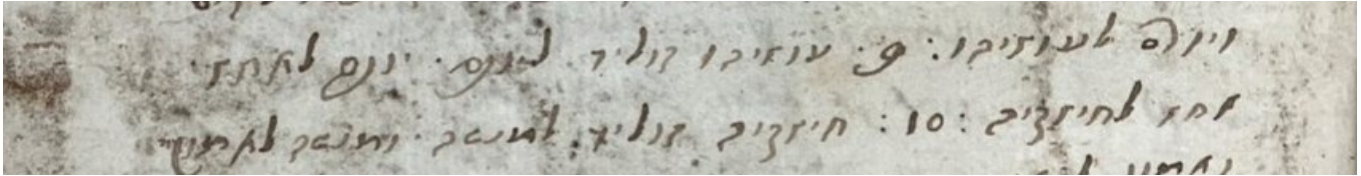 ויורם לעוזיהו : 9 : עוזיהו הוליד ליותם . יותם לאחז .
אחז לחיזקיה : 10 : חיזקיה הוליד למנשה . ומנשה לאמון